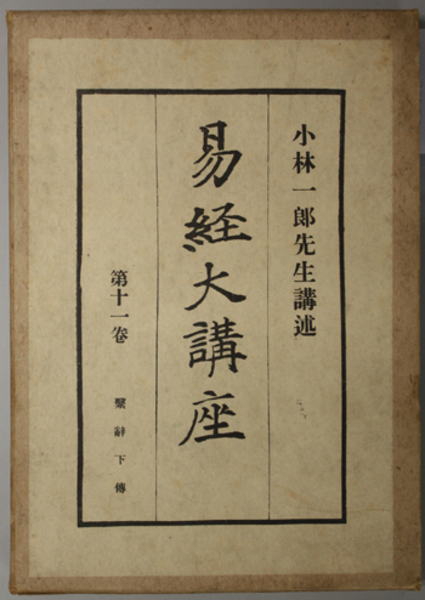 小林一郎先生講述
易経大講座
第十一卷
繫辭下傳